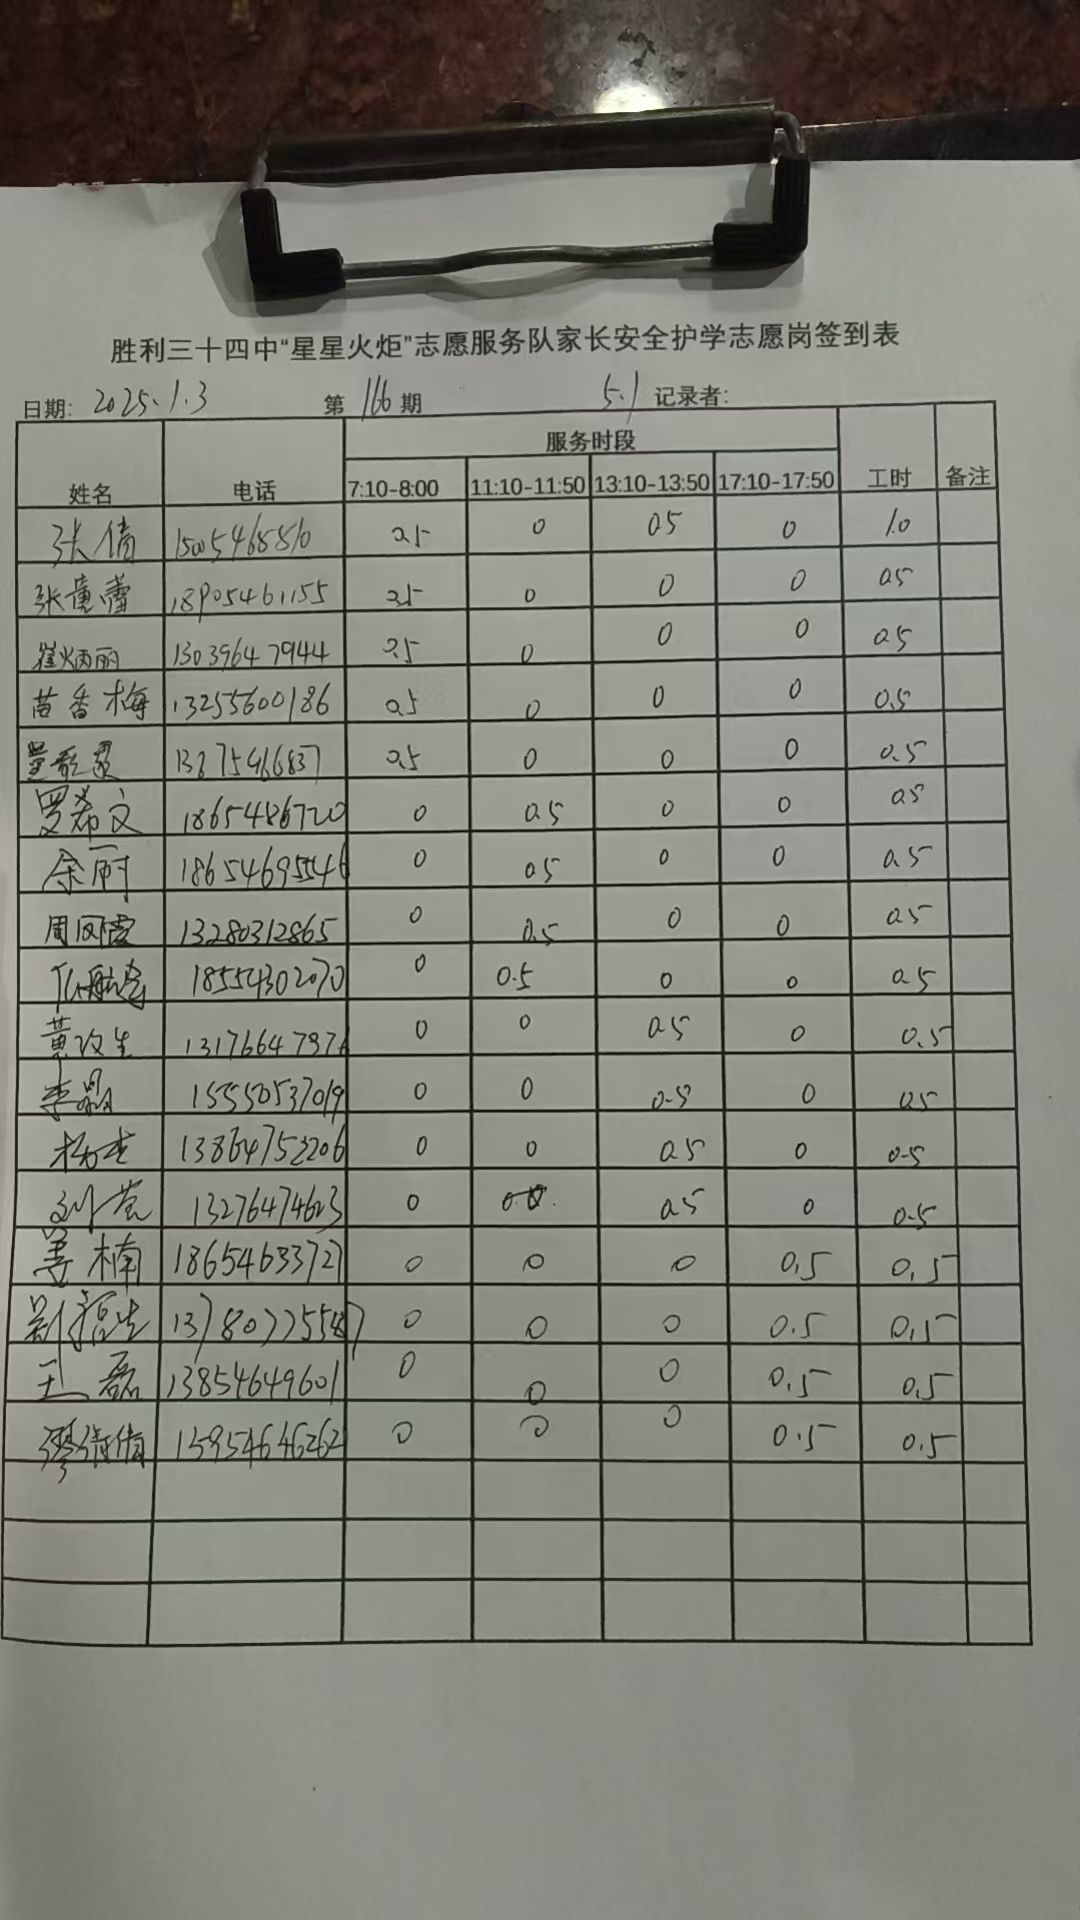 胜利三十四中“星星火炬”志愿服务队家长安全护学志愿岗签到表
日期: 2025.1.3 第 166 期 5.1 记录者:
服务时段
姓名 电话 7:10-8:00 11:10-11:50 13:10-13:50 17:10-17:50 工时 备注
张倩 0.5 0 0.5 0 1.0
张童蕾 18905461155 0.5 0 0 0 0.5
崔炳丽 13039647944 0.5 0 0 0 0.5
苗香梅 13255600186 0.5 0 0 0 0.5
0.5 0 0 0 0.5
罗希文 18654886720 0 0.5 0 0 0.5
余丽 18654695546 0 0.5 0 0 0.5
周凤霞 13280312865 0 0.5 0 0 0.5
18554302070 0 0.5 0 0 0.5
黄改生 0 0 0.5 0 0.5
李晶 15550537019 0 0 0.5 0 0.5
杨杰 0 0 0.5 0 0.5
刘营 13276474623 0 0.5 0 0.5
姜楠 18654633727 0 0 0 0.5 0.5
0 0 0 0.5 0.5
王磊 13854649601 0 0 0 0.5 0.5
廖倩倩 15954646262 0 0 0 0.5 0.5